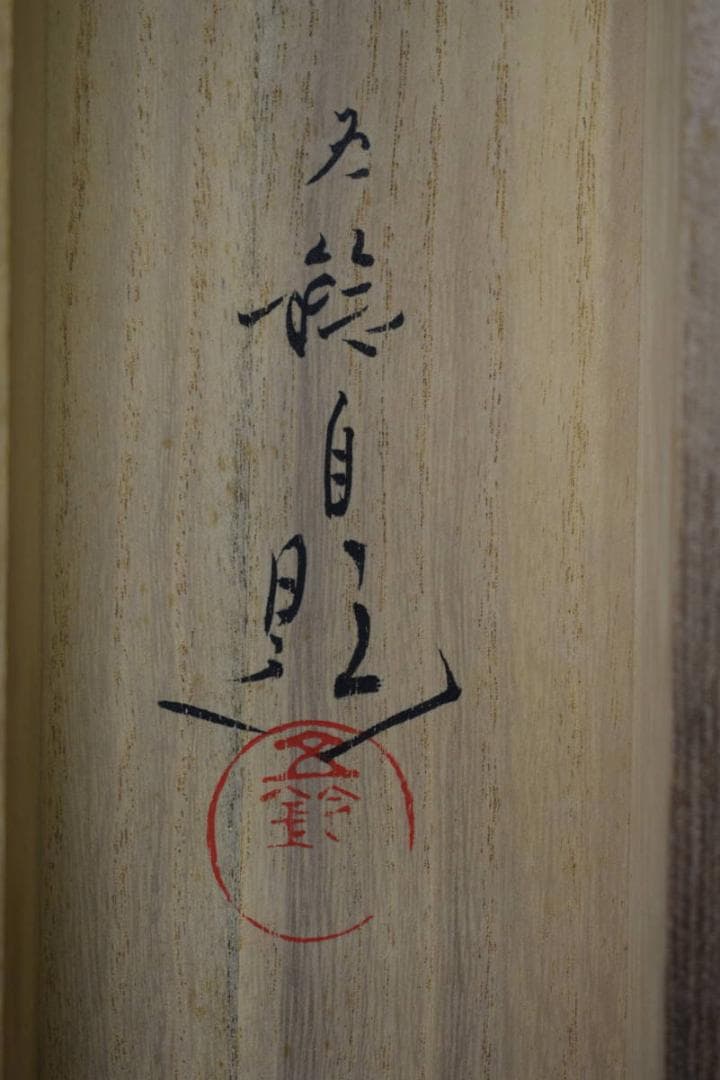 五鈴自題
五鈴